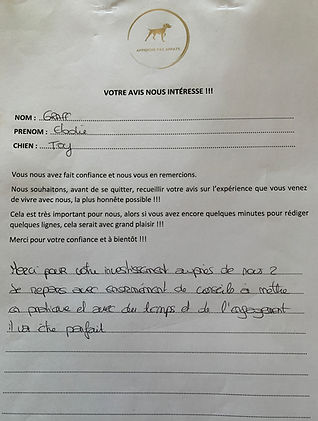 VOTRE AVIS NOUS INTÉRESSE !!!
NOM : GRAFF
PRENOM : Elodie
CHIEN : Toy
Vous nous avez fait confiance et nous vous en remercions.
Nous souhaitons, avant de se quitter, recueillir votre avis sur l'expérience que vous venez
de vivre avec nous, la plus honnête possible !!!
Cela est très important pour nous, alors si vous avez encore quelques minutes pour rédiger
quelques lignes, cela serait avec grand plaisir !!!
Merci pour votre confiance et à bientôt !!!
Merci pour votre investissement auprès de nous 2
Je repars avec énormément de conseils à mettre
en pratique et avec du temps et de l'engagement
il va être parfait